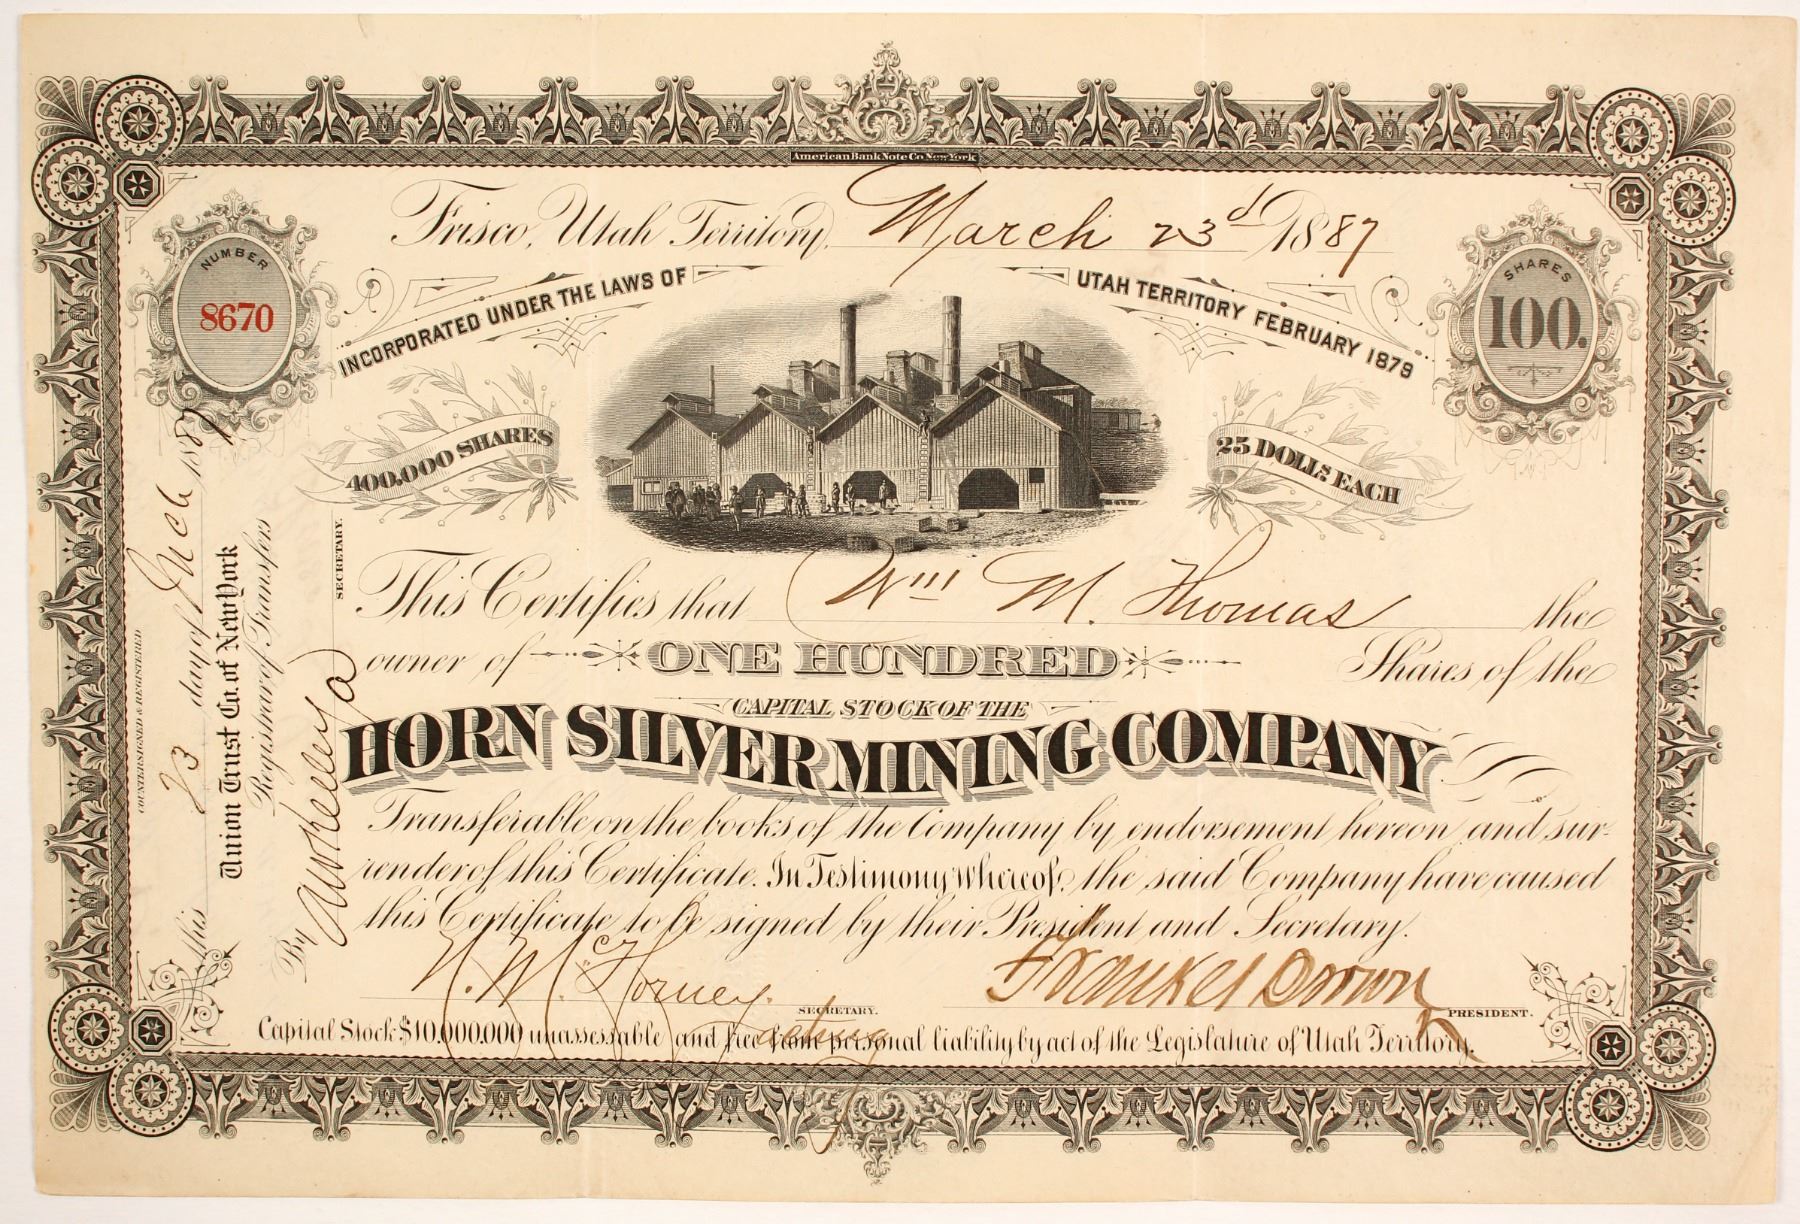 American Bank Note Co. New York
Frisco, Utah Territory, March 23d 1887
NUMBER
8670
SHARES
100.
INCORPORATED UNDER THE LAWS OF UTAH TERRITORY FEBRUARY 1879
400,000 SHARES
25 DOLLS EACH
This Certifies that Wm M. Thomas the
owner of ONE HUNDRED Shares of the
CAPITAL STOCK OF THE
HORN SILVER MINING COMPANY
Transferable on the books of the Company by endorsement hereon and sur-
render of this Certificate. In Testimony Whereof, the said Company have caused
this Certificate to be signed by their President and Secretary.
SECRETARY.
PRESIDENT.
Capital Stock $10,000,000 unassessable and free from personal liability by act of the Legislature of Utah Territory.
COUNTERSIGNED & REGISTERED
this 23 day of Mch 1887
Union Trust Co. of New York
Registrar of Transfers
By
SECRETARY.